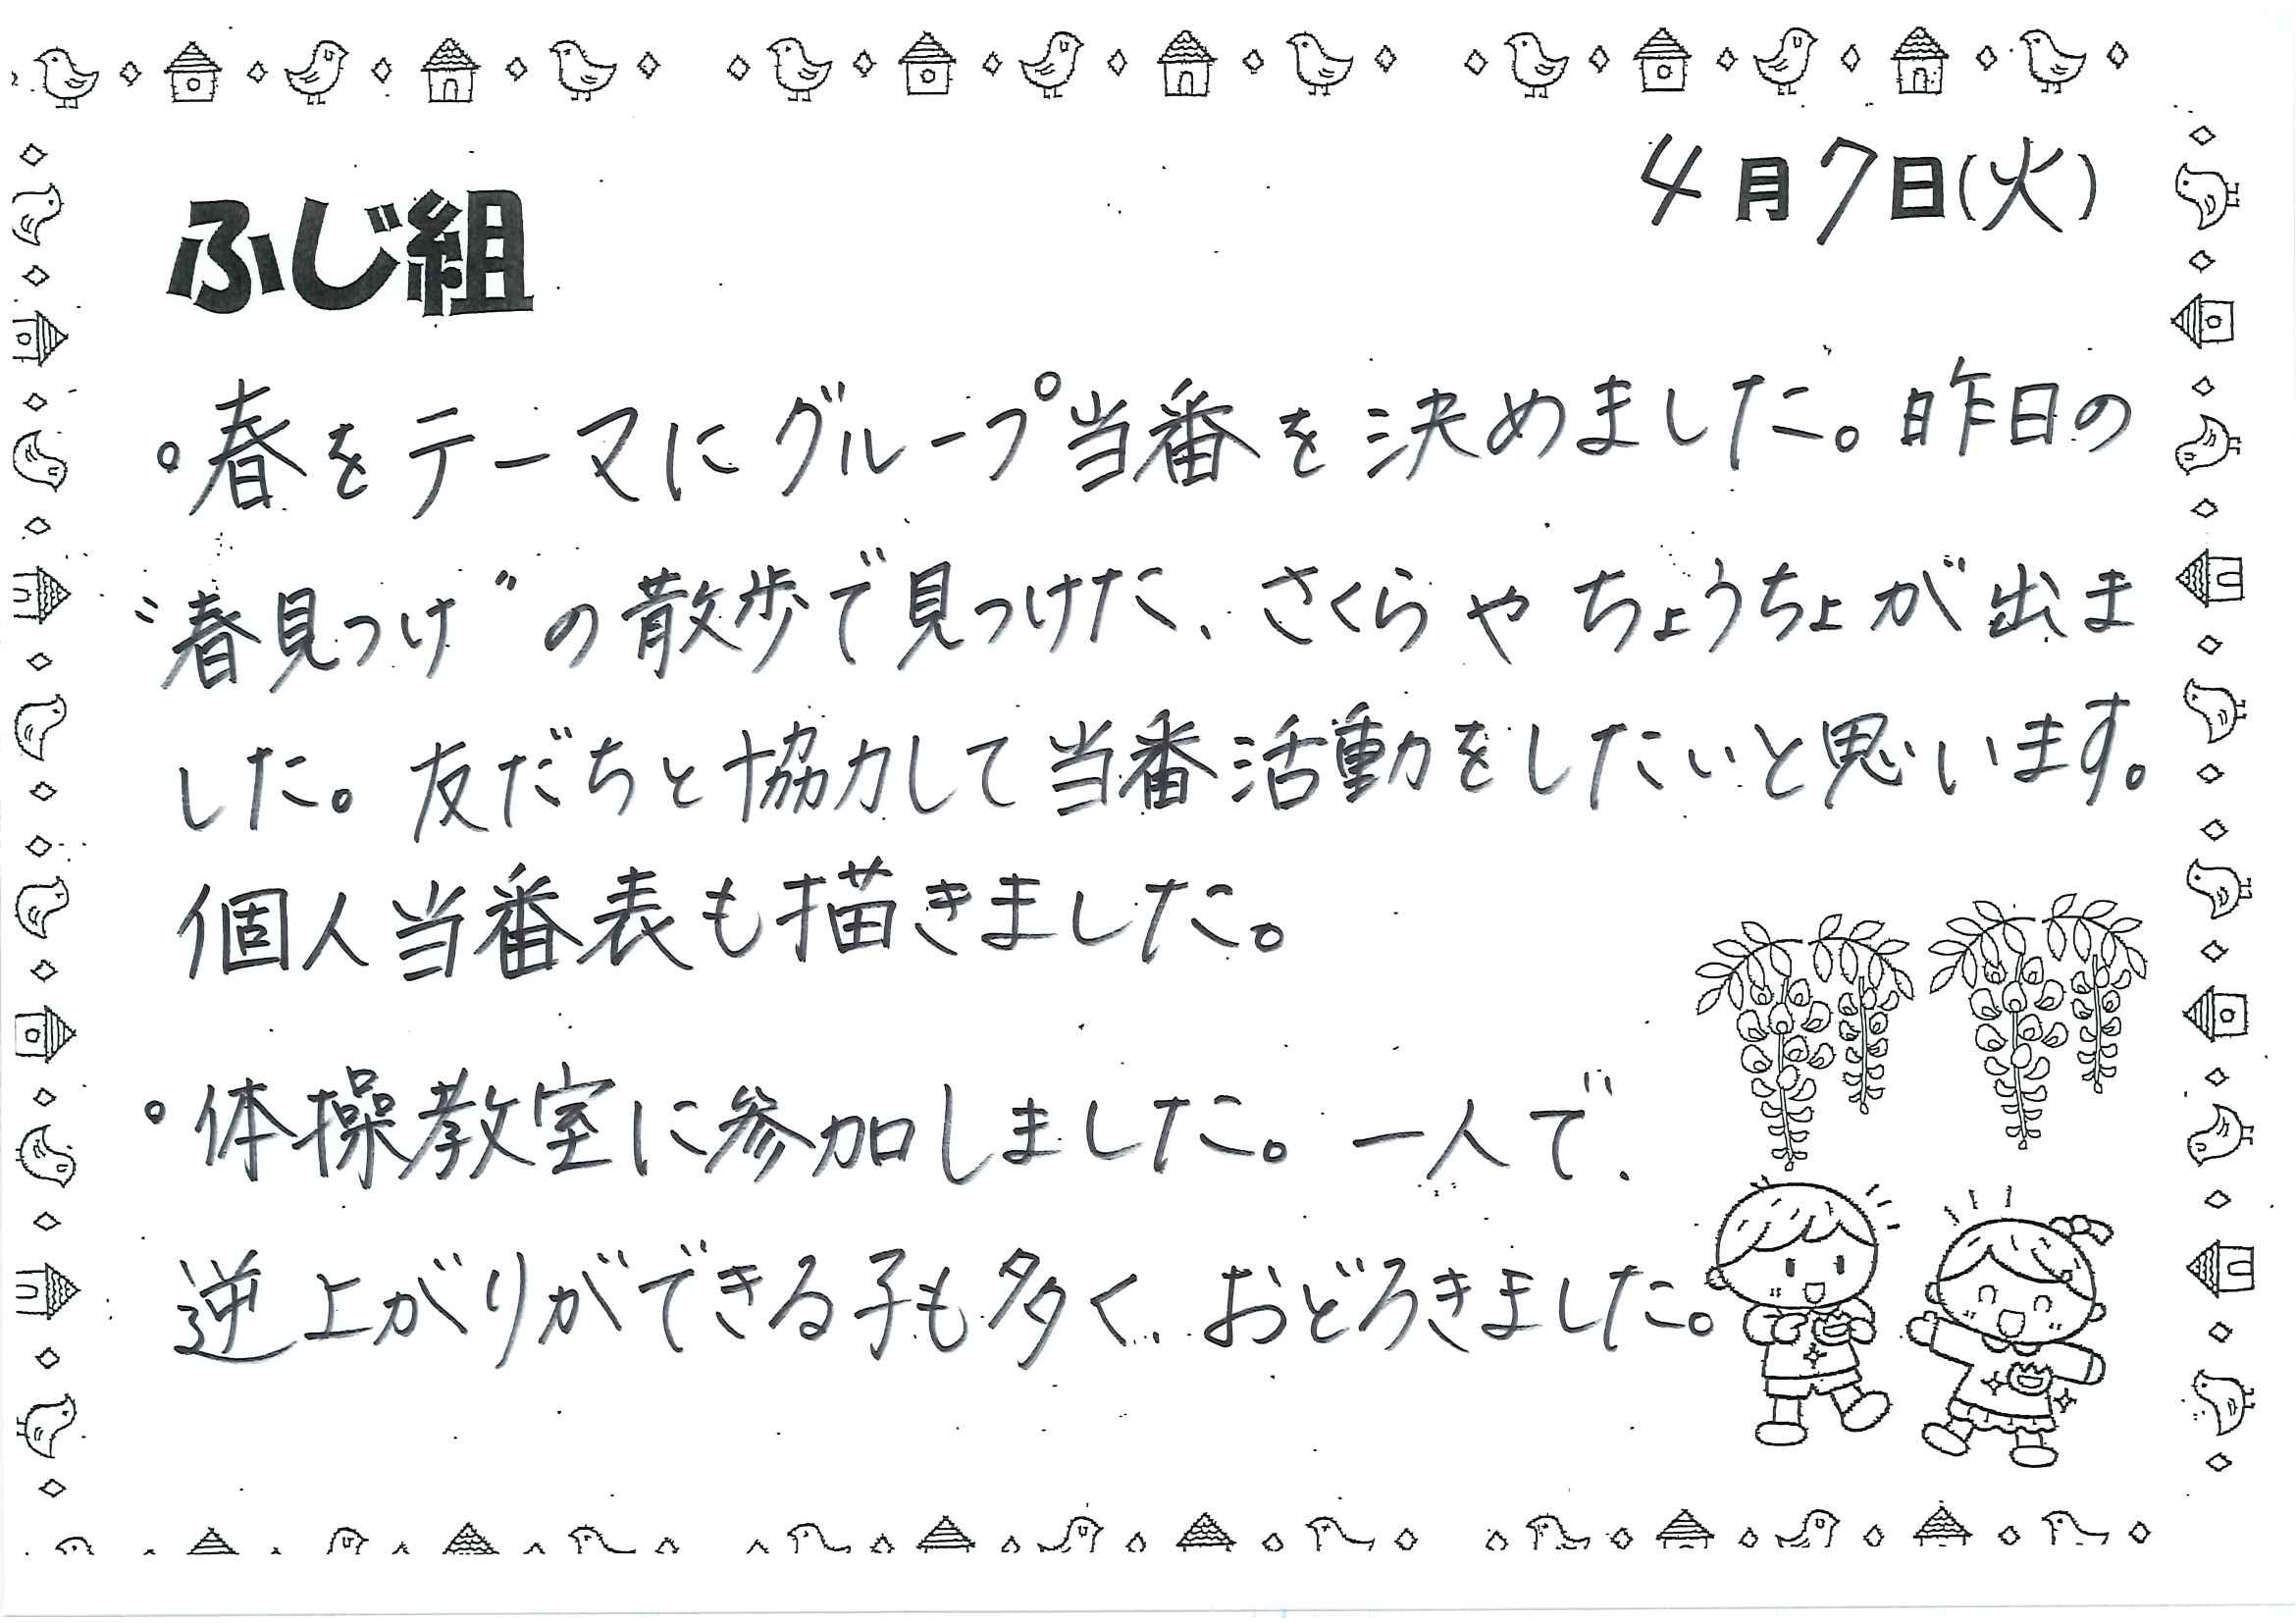 4月7日(火)
ふじ組
。春をテーマにグループ当番を決めました。昨日の
“春見つけ”の散歩で見つけた、さくらやちょうちょが出ま
した。友だちと協力して当番活動をしたいと思います。
個人当番表も描きました。
。体操教室に参加しました。一人で、
逆上がりができる子も多く、おどろきました。